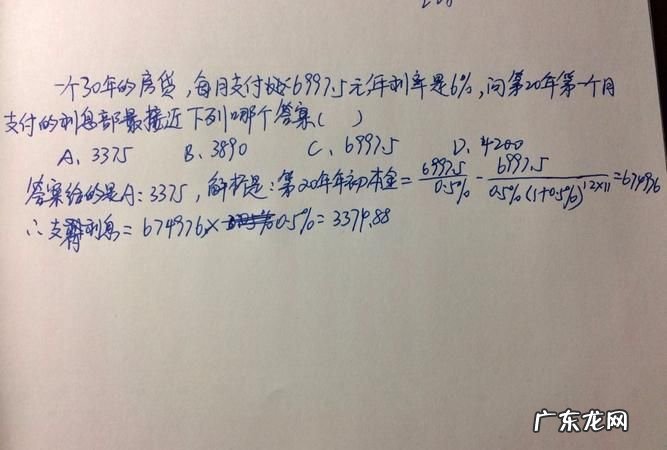 一个30年的房贷，每月支付额6997.5元，年利率是6%，问第20年第一个月
支付的利息部最接近下列哪个答案（ ）
A、3375 B、3890 C、6997.5 D、4200
答案给的是A：3375，解析是：第20年年初本金=6997.5/0.5% - 6997.5/0.5%(1+0.5%)^12×11=674976
∴支付利息=674976× 0.5%=3374.88
广东龙网